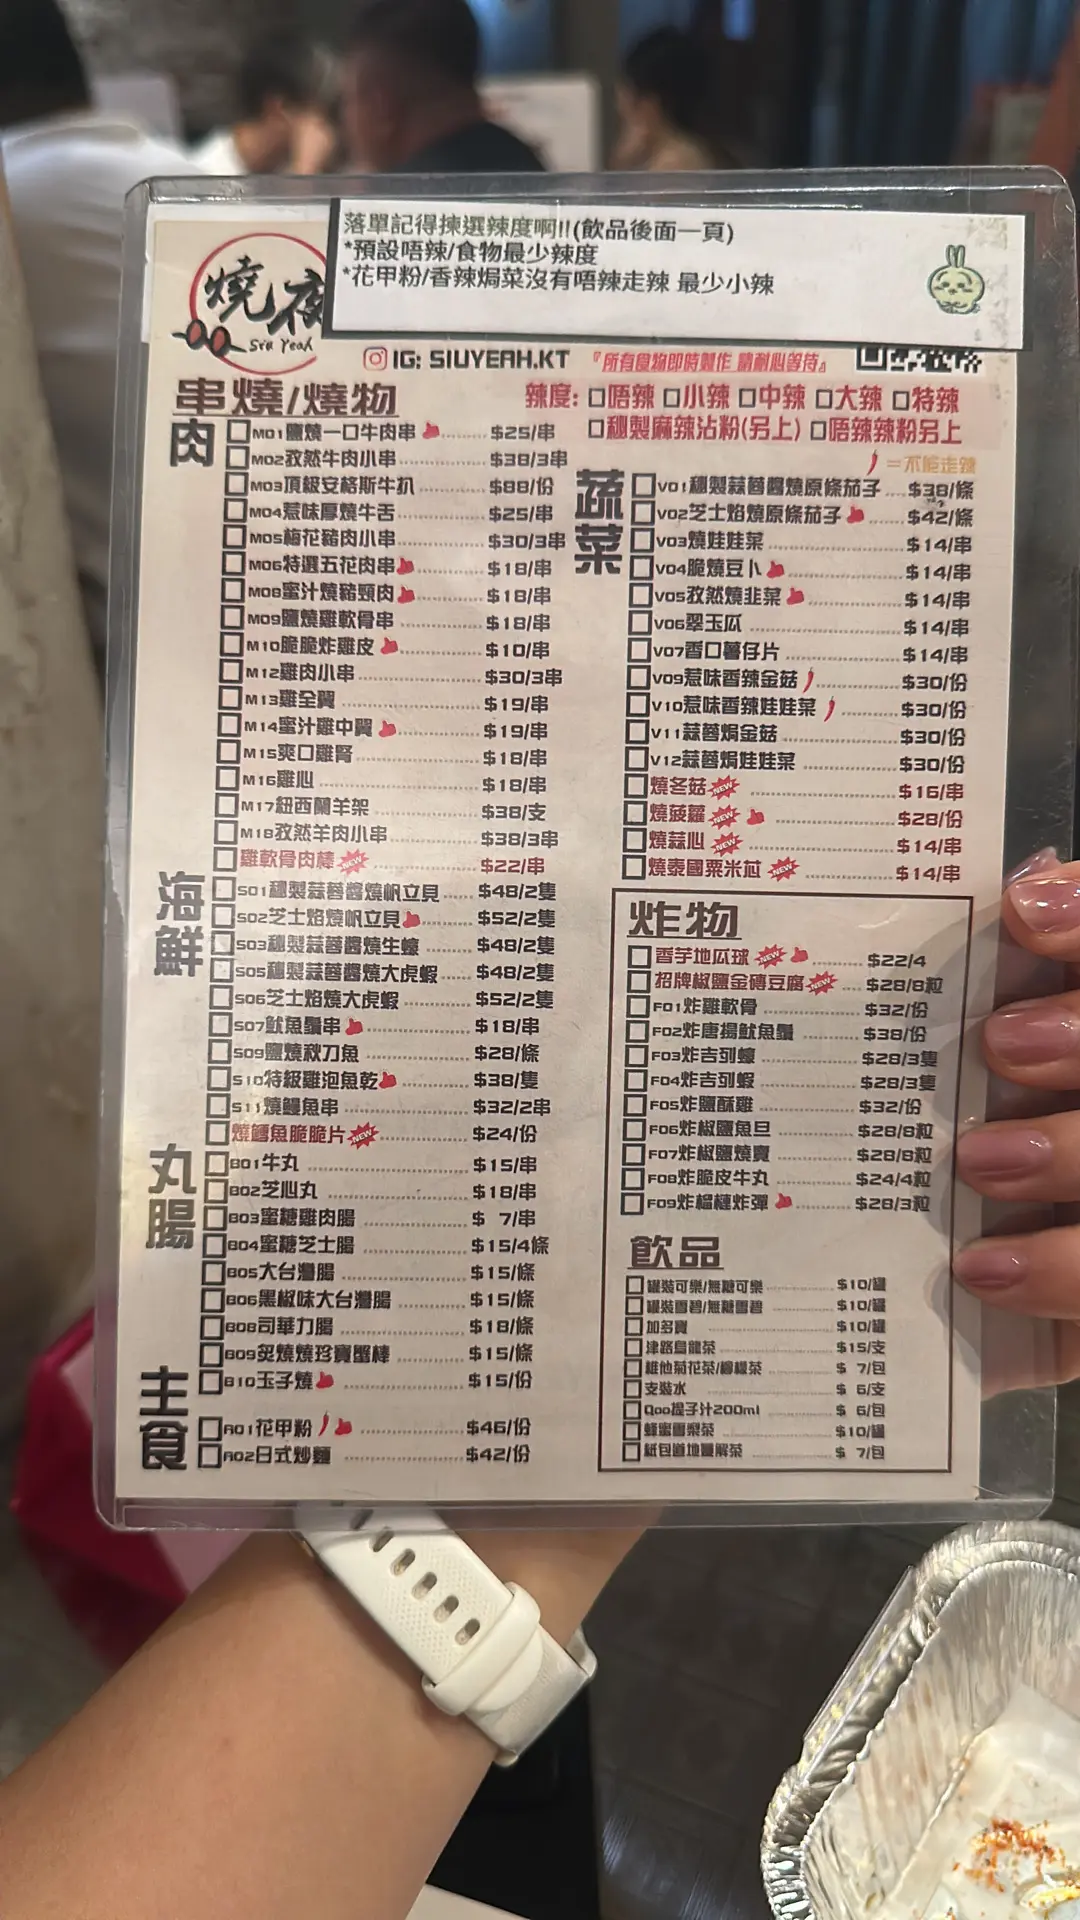 落單記得揀選辣度啊!!(飲品後面一頁)
*預設唔辣/食物最少辣度
*花甲粉/香辣焗菜沒有唔辣走辣 最少小辣
燒夜
Siu Yeah
IG: SIUYEAH.KT
『所有食物即時製作 請耐心等待』
串燒/燒物
辣度: 口唔辣 口小辣 口中辣 口大辣 口特辣
口秘製麻辣沾粉(另上) 口唔辣辣粉另上
=不能走辣
肉
M01鹽燒一口牛肉串 $25/串
M02孜然牛肉小串 $38/3串
M03頂級安格斯牛扒 $88/份
M04惹味厚燒牛舌 $25/串
M05梅花豬肉小串 $30/3串
M06特選五花肉串 $18/串
M08蜜汁燒豬頸肉 $18/串
M09鹽燒雞軟骨串 $18/串
M10脆脆炸雞皮 $10/串
M12雞肉小串 $30/3串
M13雞全翼 $19/串
M14蜜汁雞中翼 $19/串
M15爽口雞腎 $18/串
M16雞心 $18/串
M17紐西蘭羊架 $38/支
M18孜然羊肉小串 $38/3串
雞軟骨肉棒 NEW $22/串
海鮮
S01秘製蒜蓉醬燒帆立貝 $48/2隻
S02芝士焰燒帆立貝 $52/2隻
S03秘製蒜蓉醬燒生蠔 $48/2隻
S05秘製蒜蓉醬燒大虎蝦 $48/2隻
S06芝士焰燒大虎蝦 $52/2隻
S07魷魚鬚串 $18/串
S09鹽燒秋刀魚 $28/條
S10特級雞泡魚乾 $38/隻
S11燒鰻魚串 $32/2串
燒鱈魚脆脆片 NEW $24/份
丸腸
B01牛丸 $15/串
B02芝心丸 $18/串
B03蜜糖雞肉腸 $ 7/串
B04蜜糖芝士腸 $15/4條
B05大台灣腸 $15/條
B06黑椒味大台灣腸 $15/條
B08司華力腸 $18/條
B09炙燒燒珍寶蟹棒 $15/條
B10玉子燒 $15/份
主食
A01花甲粉 $46/份
A02日式炒麵 $42/份
蔬菜
V01秘製蒜蓉醬燒原條茄子 $38/條
V02芝士焰燒原條茄子 $42/條
V03燒娃娃菜 $14/串
V04脆燒豆卜 $14/串
V05孜然燒韭菜 $14/串
V06翠玉瓜 $14/串
V07香口薯仔片 $14/串
V09惹味香辣金菇 $30/份
V10惹味香辣娃娃菜 $30/份
V11蒜蓉焗金菇 $30/份
V12蒜蓉焗娃娃菜 $30/份
燒冬菇 NEW $16/串
燒菠蘿 NEW $28/份
燒蒜心 NEW $14/串
燒泰國粟米芯 NEW $14/串
炸物
香芋地瓜球 NEW $22/4
招牌椒鹽金磚豆腐 NEW $28/8粒
F01炸雞軟骨 $32/份
F02炸唐揚魷魚鬚 $38/份
F03炸吉列蠔 $28/3隻
F04炸吉列蝦 $28/3隻
F05炸鹽酥雞 $32/份
F06炸椒鹽魚旦 $28/8粒
F07炸椒鹽燒賣 $28/8粒
F08炸脆皮牛丸 $24/4粒
F09炸榴槤炸彈 $28/3粒
飲品
罐裝可樂/無糖可樂 $10/罐
罐裝雪碧/無糖雪碧 $10/罐
加多寶 $10/罐
津路烏龍茶 $15/支
維他菊花茶/檸檬茶 $ 7/包
支裝水 $ 6/支
Qoo提子汁200ml $ 6/包
蜂蜜雪梨茶 $10/罐
紙包道地蜂解茶 $ 7/包